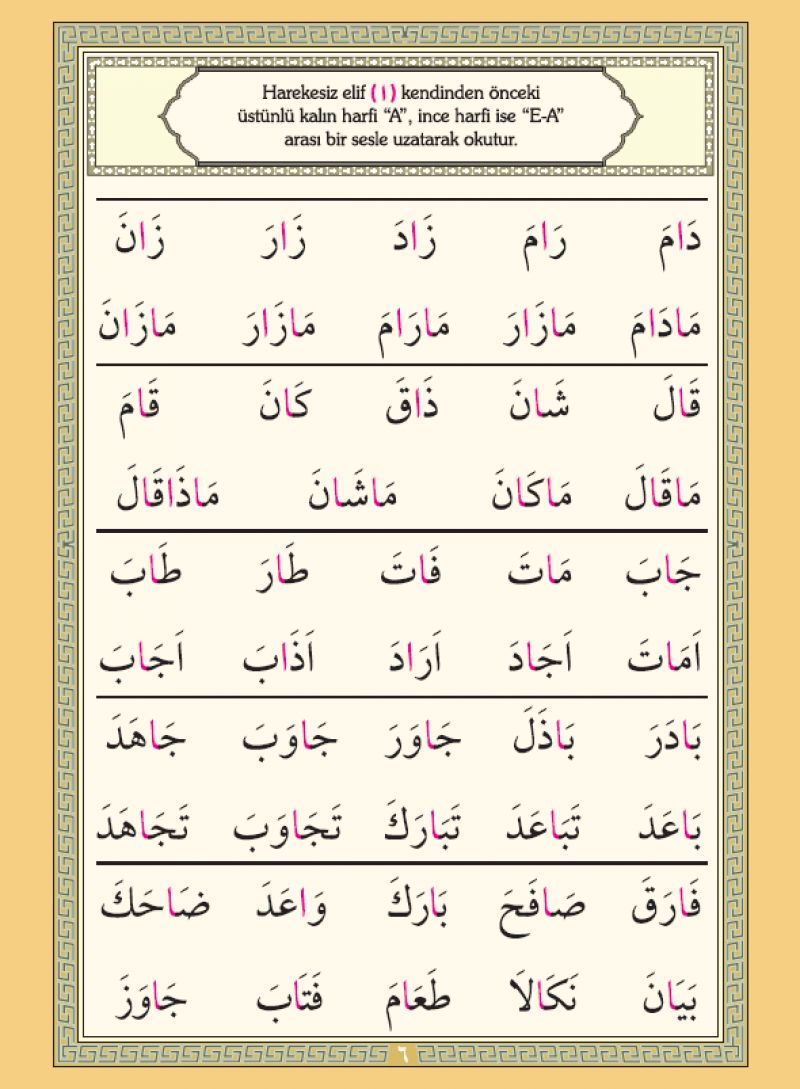 Harekesiz elif ( ا ) kendinden önceki
üstünlü kalın harfi “A”, ince harfi ise “E-A”
arası bir sesle uzatarak okutur.
دَامَ رَامَ زَادَ زَارَ زَانَ
مَادَامَ مَازَارَ مَارَامَ مَازَارَ مَازَانَ
قَالَ شَانَ ذَاقَ كَانَ قَامَ
مَاقَالَ مَاكَانَ مَاشَانَ مَاذَاقَالَ
جَابَ مَاتَ فَاتَ طَارَ طَابَ
اَمَاتَ اَجَادَ اَرَادَ اَذَابَ اَجَابَ
بَادَرَ بَاذَلَ جَاوَرَ جَاوَبَ جَاهَدَ
بَاعَدَ تَبَاعَدَ تَبَارَكَ تَجَاوَبَ تَجَاهَدَ
فَارَقَ صَافَحَ بَارَكَ وَاعَدَ ضَاحَكَ
بَيَانَ نَكَالَا طَعَامَ فَتَابَ جَاوَزَ
٦